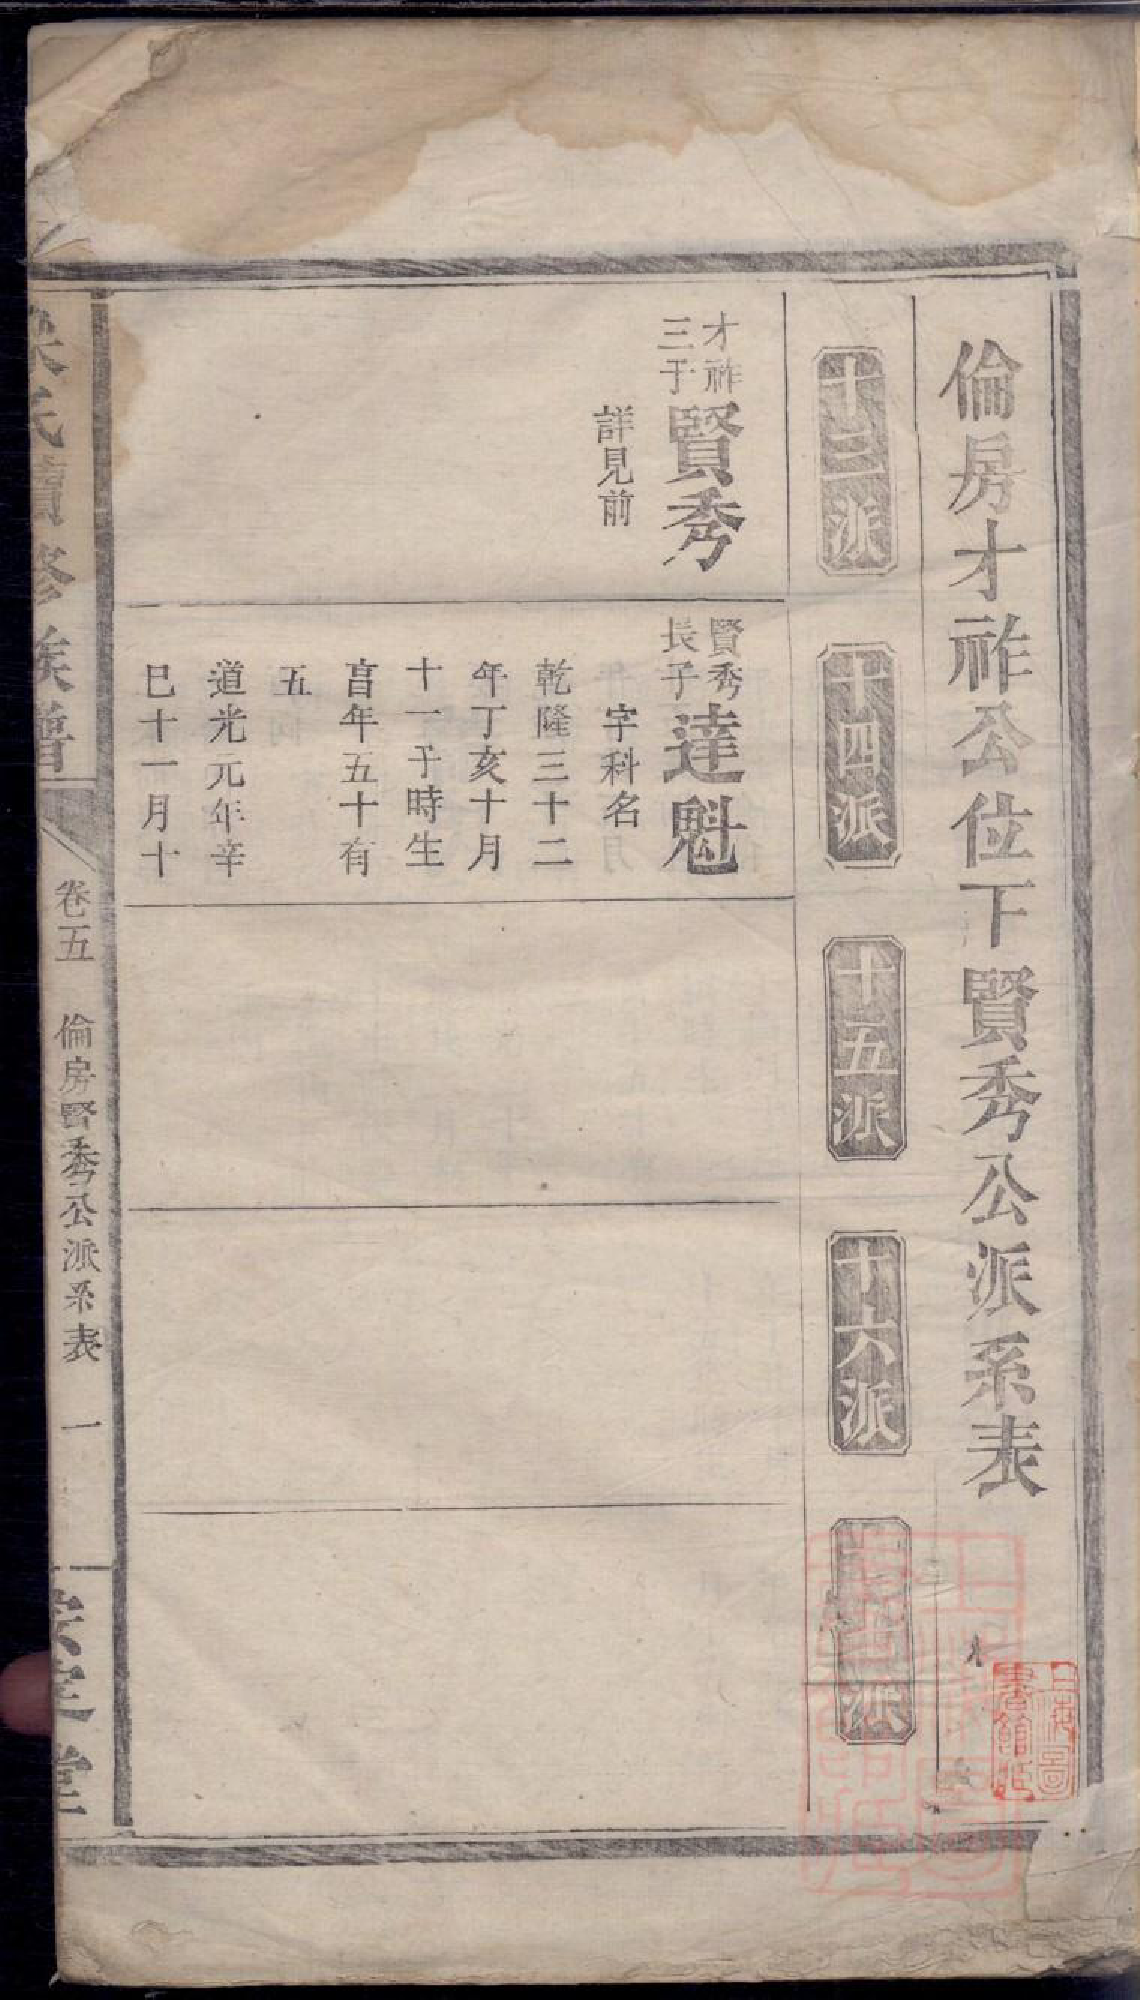 倫房才祚公位下賢秀公派系表
十三派
十四派
十五派
十六派
十七派
才祚
三子
賢秀
詳見前
賢秀
長子
達魁
字科名
乾隆三十二
年丁亥十月
十一子時生
亯年五十有
五
道光元年辛
巳十一月十
氏續修族譜
卷五
倫房賢秀公派系表
一
堂
上海圖
書館藏